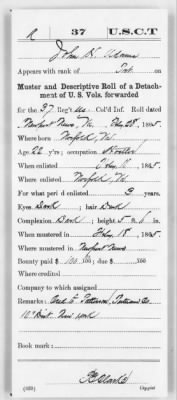 R 37 U.S.C.T.
John H.
Appears with rank of Pvt. on
Muster and Descriptive Roll of a Detach-
ment of U. S. Vols. forwarded
for the 37 Reg't US Col'd Inf. Roll dated
Newport News, Va. Feby 28, 1865.
Where born Norfolk, Va.
Age 22 y'rs; occupation
When enlisted Feby 1865.
Where enlisted Norfolk, Va.
For what period enlisted 3 years.
Eyes Dark; hair Dark
Complexion Dark; height 5 ft. 6 in.
When mustered in Feby 18, 1865.
Where mustered in Newport News
Bounty paid $ 100 100; due $ 100
Where credited
Company to which assigned
Remarks:
10" Dist. New York
Book mark:
Clarke
(339) Copyist.